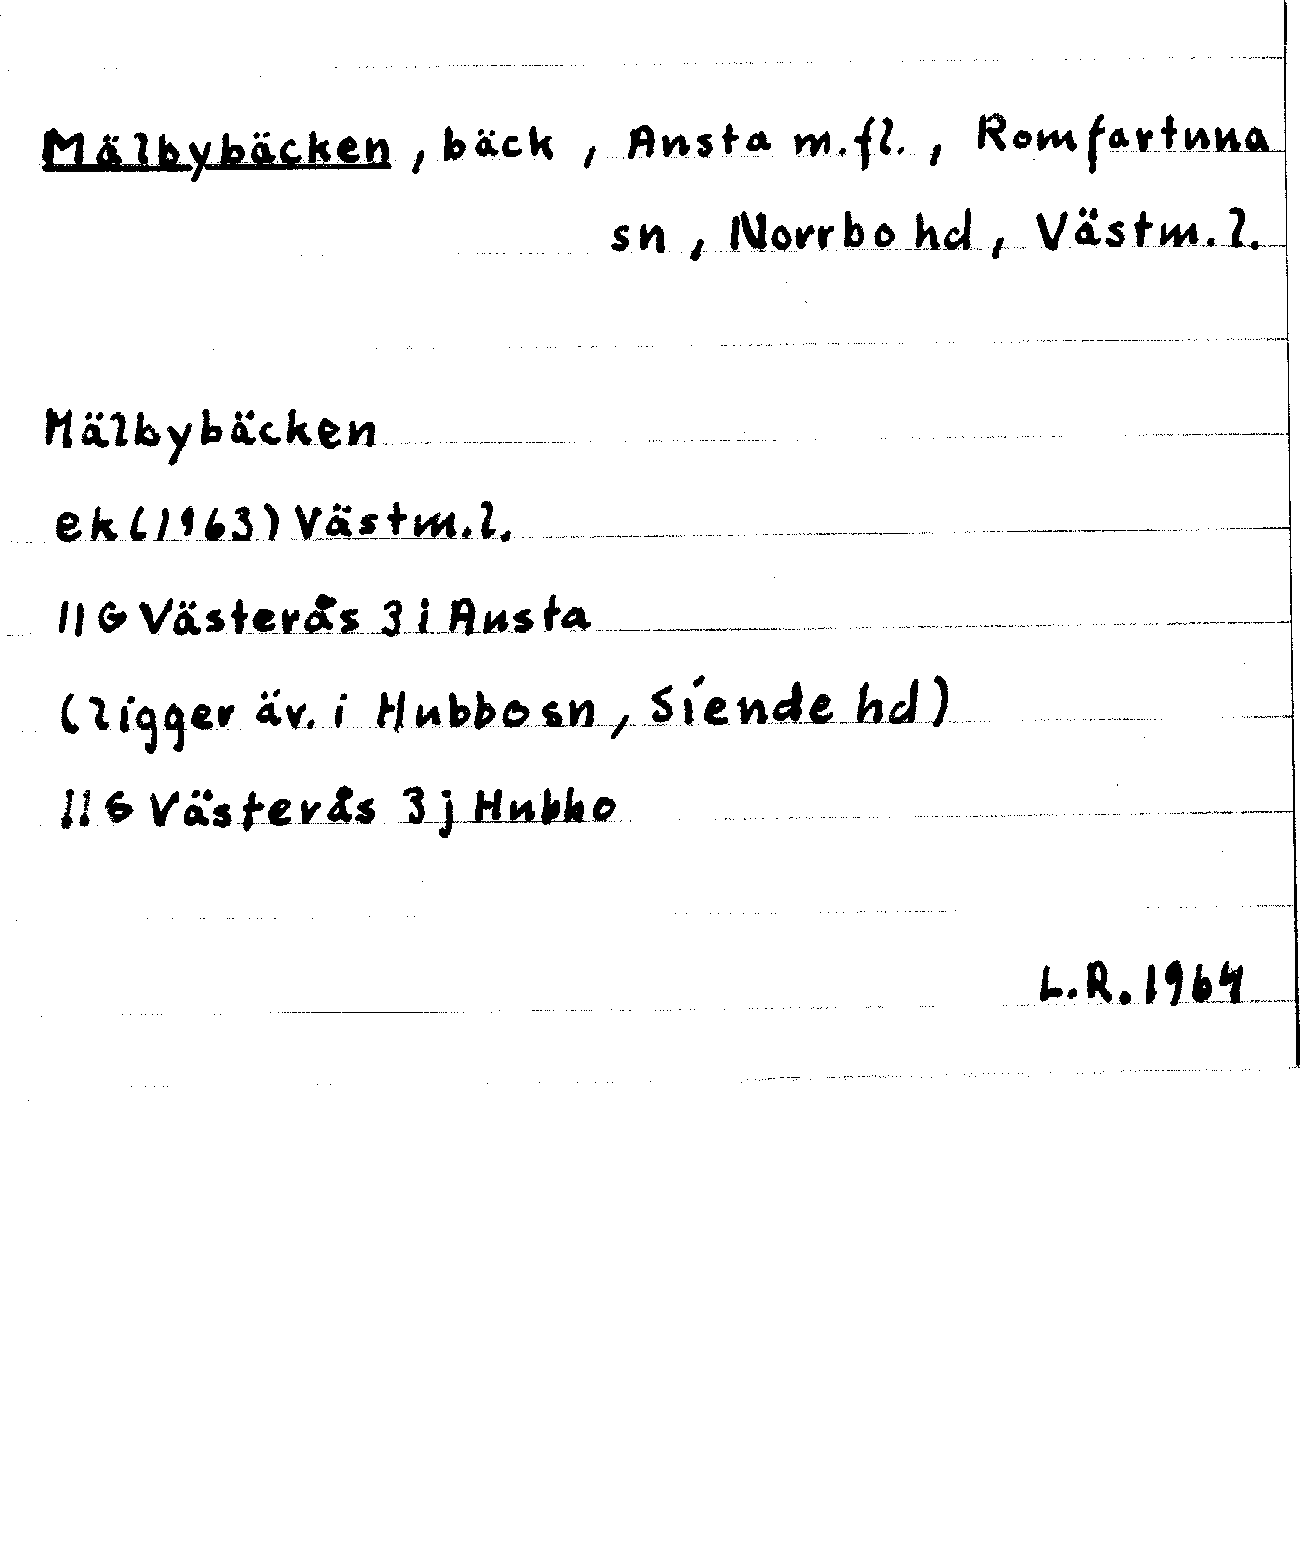 Mälbybäcken, bäck, Ansta m.fl., Romfartuna
sn, Norrbo hd, Västm.l.
Mälbybäcken
ek(1963) Västm.l.
11G Västerås 3i Ansta
(ligger äv. i Hubbo sn, Siende hd)
11G Västerås 3j Hubbo
L.R. 1964